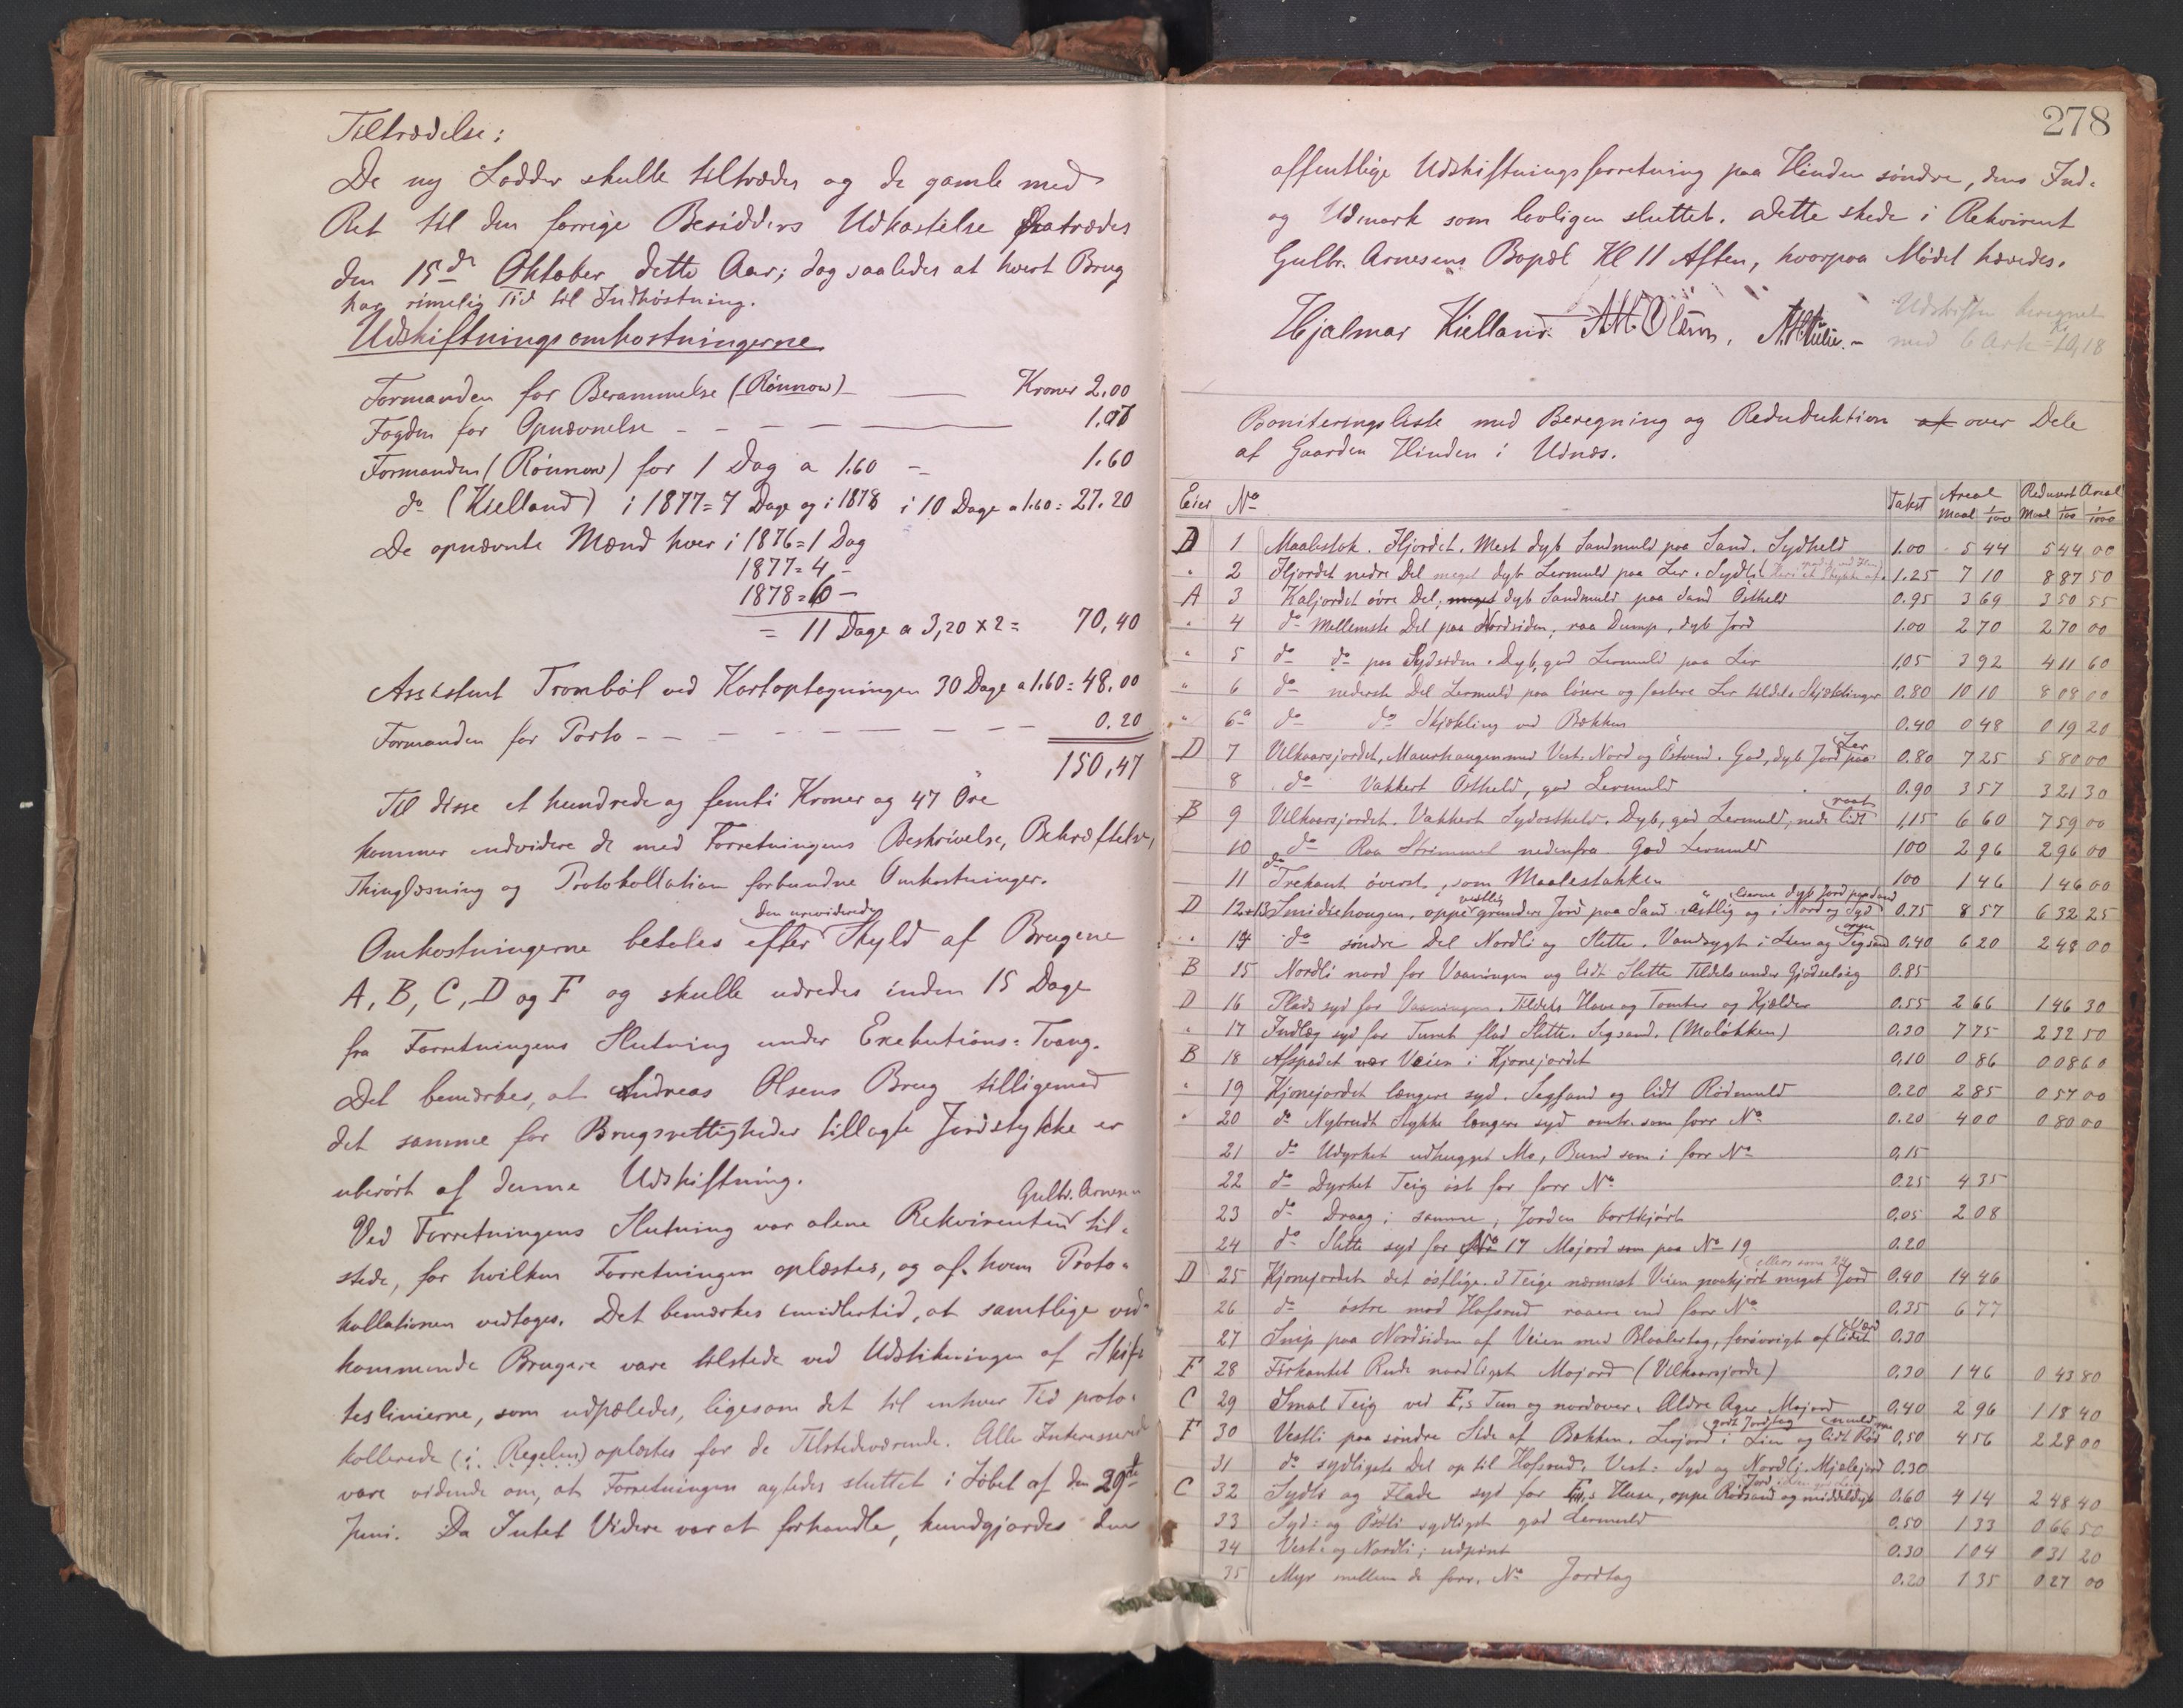 Tiltrædelse:
De ny Lodder skulle tiltrædes og de gamle med
Ret til den forrige Besidders Udkastelse fratrædes
den 15de Oktober dette Aar; dog saaledes at hvert Brug
har rimelig Tid til Indhøstning.
Udskiftningsomkostningerne
Formanden for Berammelse (Rönnow) — Kroner 2.00
Fogden for Opnævnelse - - — — 1.07
Formanden (Rönnow) for 1 Dag a 1.60 - 1.60
do (Kielland) i 1877 = 7 Dage og i 1878 i 10 Dage a 1.60 = 27.20
De opnævnte Mænd hver i 1876 = 1 Dag
1877 = 4 -
1878 = 6 -
= 11 Dage a 3,20 x 2 = 70,40
Assistent Trombøl ved Kartoptegningen 30 Dage a 1.60 = 48.00
Formanden for Porto - - - - - - 0.20
150,47
Til disse et hundrede og femti Kroner og 47 Öre
kommer endvidere de med Forretningens Beskrivelse, Bekræftelse,
Thinglæsning og Protokollation forbundne Omkostninger.
Omkostningerne betales efter den ureviderede Skyld af Brugene
A, B, C, D og F og skulle udredes inden 15 Dage
fra Forretningens Slutning under Exekutions-Tvang.
Det bemærkes, at Andreas Olsens Brug tilligemed
det samme for Brugsrettigheder tillagte Jordstykke er
uberørt af denne Udskiftning.
Ved Forretningens Slutning var alene Rekvirenten Gulbr. Arnesen til-
stede, for hvilken Forretningen oplæstes, og af hvem Proto-
kollationen vedtoges. Det bemærkes imidlertid, at samtlige ved-
kommende Brugere vare tilstede ved Udstikningen af Skif-
teslinierne, som udpæledes, ligesom det til enhver Tid proto-
kollerede (i Regelen) oplæstes for de Tilstedeværende. Alle Interesserede
vare vidende om, at Forretningen agtedes sluttet i Løbet af den 29de
Juni. Da Intet Videre var at forhandle, kundgjordes den
278
offentlige Udskiftningsforretning paa Hinden söndre, dens Ind-
og Udmark som lovligen sluttet. Dette skede i Rekvirent
Gulbr. Arnesens Bopæl Kl 11 Aften, hvorpaa Mødet hævedes.
Hjalmar Kielland. Olsen,
Udskriften beregnet
med 6 Ark = Kr 10,18
Boniteringsliste med Beregning og Reduduktion af over Dele
af Gaarden Hinden i Udnæs.
Eier No Takst Areal Maal 1/100 Reduceret Areal Maal 1/100 1/1000
D 1 Maalestok. Hjordet. Mest dyb Sandmuld paa Sand. Sydheld 1.00 5 44 5 44 00
" 2 Hjordet nedre Del meget dyb Lermuld paa Ler. Sydli 1.25 7 10 8 87 50
A 3 Kaljordet øvre Del, meget dyb Sandmuld paa Sand Ostheld 0.95 3 69 3 50 55
" 4 do Mellemste Del paa Nordsiden, raa Dump, dyb Jord 1.00 2 70 2 70 00
" 5 do do paa Sydsiden. Dyb, god Lermuld paa Ler 1,05 3 92 4 11 60
" 6 do nederste Del Lermuld paa løsere og fastere Ler tildels Skjæklinger 0.80 10 10 8 08 00
" 6a do do Skjækling ved Bækken 0.40 0 48 0 19 20
D 7 Vilkaarsjordet, Maurhaugen med Vest, Nord og Östvend. God, dyb Jord paa Ler 0.80 7 25 5 80 00
8 do Vakkert Ostheld, god Lermuld 0.90 3 57 3 21 30
B 9 Vilkaarsjordet. Vakkert Sydostheld. Dyb, god Lermuld, nede lidt raat 1,15 6 60 7 59 00
10 do Raa Strimmel nedenfra. God Lermuld 100 2 96 2 96 00
11 do Trekant överst, som Maalestokken 100 1 46 1 46 00
D 12+13 Smidiehaugen, oppe vestlig grundere Jord paa Sand. Østlig og i Nord og Syd lierne dyb Jord paa Sand 0.75 8 57 6 32 25
" 14 do søndre Del Nordli og Slette. Vandsygt i Lien og Segsand 0.40 6 20 2 48 00
B 15 Nordli nord for Vaaningen og lidt Slette Tildels under Gjødselsig 0.85
D 16 Plads syd for Vaaningen. Tildels Have og Tomter og Kjælder 0.55 2 66 1 46 30
" 17 Indlæg syd for Tunet flad Slette. Segsand. (Moløkken) 0.30 7 75 2 32 50
B 18 Afspadet nær Veien i Kjonejordet 0,10 0 86 0 08 60
" 19 Kjonejordet længere syd. Segsand og lidt Rödmuld 0.20 2 85 0 57 00
" 20 do Nybrudt Stykke længere syd omtr. som forr No 0.20 4 00 0 80 00
21 do Udyrket udhugget Mo, Bund som i forr No 0,15
22 do Dyrket Teig øst for forr No 0.25 4 35
23 do Draag i samme, Jorden bortkjørt 0,05 2 08
24 do Slette syd for No 17 Mojord som paa No 19 0.20
D 25 Kjonejordet det østlige. 3 Teige nærmest Veien paakjørt meget Jord ellers som 24 0,40 14 46
26 do østre mod Hofsrud raaere end forr No 0.35 6 77
27 Snip paa Nordsiden af Veien med Blaalertag, forøvrigt af lidet Værd 0.30
F 28 Firkantet Rude nordligst Mojord (Vilkaarsjorde) 0,30 1 46 0 43 80
C 29 Smal Teig ved F,s Tun og nordover. Ældre Ager Mojord 0,40 2 96 1 18 40
F 30 Vestli paa søndre Side af Bækken. Lerjord i Lien og lidt Rødmuld godt Jordlag 0,50 4 56 2 28 00
31 do sydligste Del op til Hofsrud. Vest- Syd og Nordli. Mjælejord 0.30
C 32 Sydli og Flade syd for F,s Huse, oppe Rødsand og middeldyb Jord 0,60 4 14 2 48 40
33 Syd- og Östli sydligst god Lermuld 0,50 1 33 0 66 50
34 Vest- og Nordli; udpint 0.30 1 04 0 31 20
35 Myr mellem de forr. No Jordtag 0.20 1 35 0 27 00